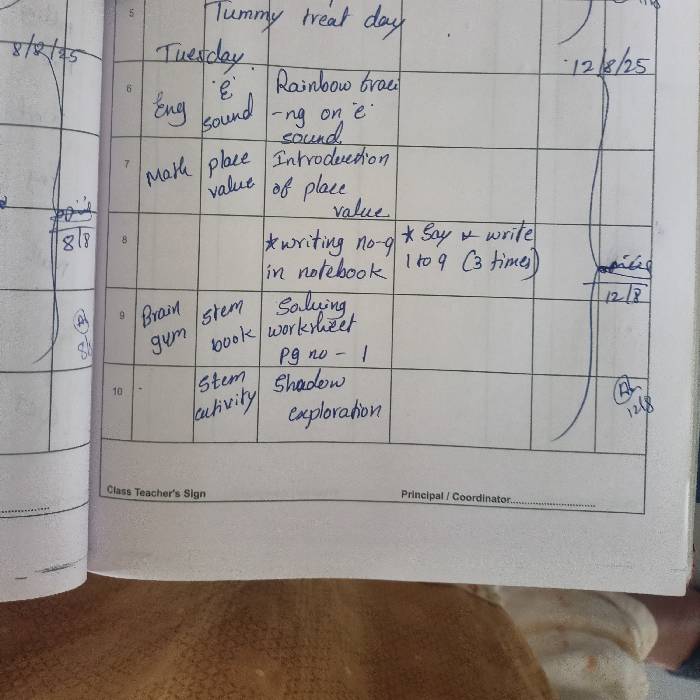 5 Tummy treat day
8/8/25
Tuesday 12/8/25
6 Eng 'E' sound Rainbow traci
-ng on 'e'
sound
7 Math place value Introduction
of place
value
8 *writing no-9 * Say & write
in notebook 1 to 9 (3 times)
8/8
12/8
9 Brain gym Stem book Solving
worksheet
pg no - 1
10 - Stem activity Shadow
exploration
12/8
Class Teacher's Sign Principal / Coordinator